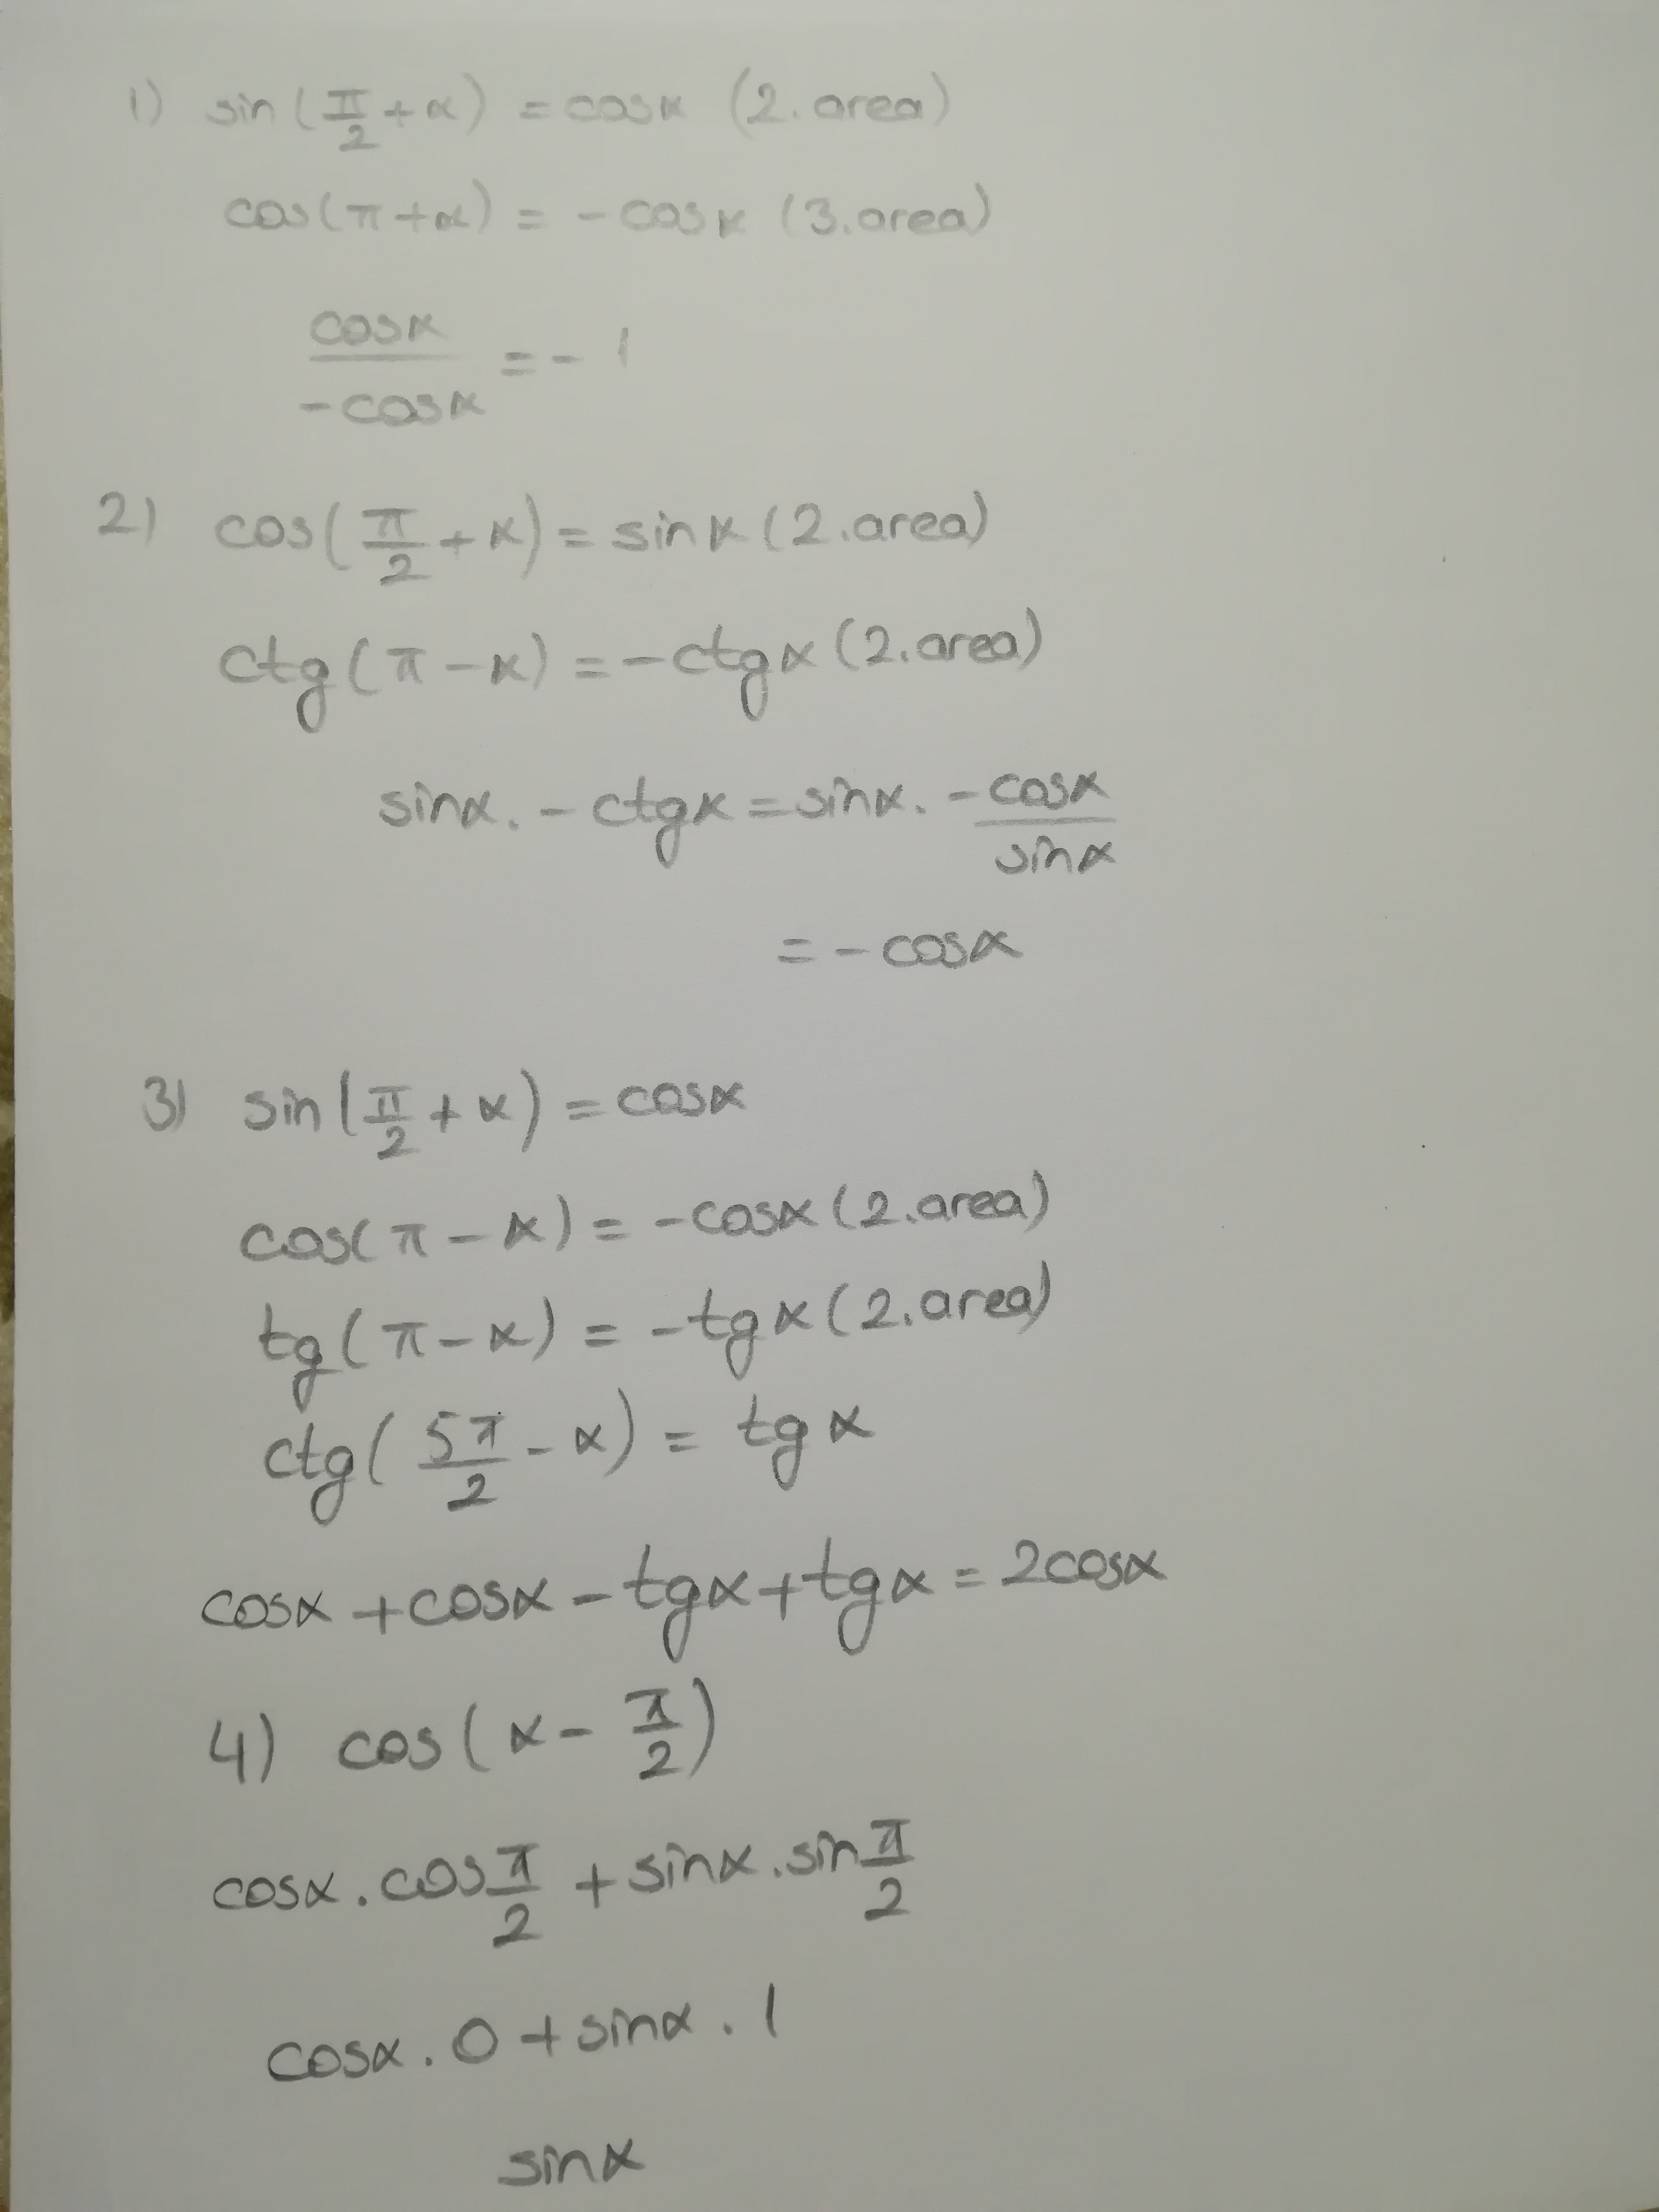 1) sin(π/2 + α) = cosα (2. area)
cos(π + α) = - cosα (3. area)
cosα / -cosα = - 1
2) cos(π/2 + α) = sinα (2. area)
ctg(π - α) = - ctgα (2. area)
sinα. - ctgα = sinα. - cosα / sinα
= - cosα
3) sin(π/2 + α) = cosα
cos(π - α) = - cosα (2. area)
tg(π - α) = - tgα (2. area)
ctg(5π/2 - α) = tgα
cosα + cosα - tgα + tgα = 2cosα
4) cos(α - π/2)
cosα . cos π/2 + sinα . sin π/2
cosα . 0 + sinα . 1
sinα